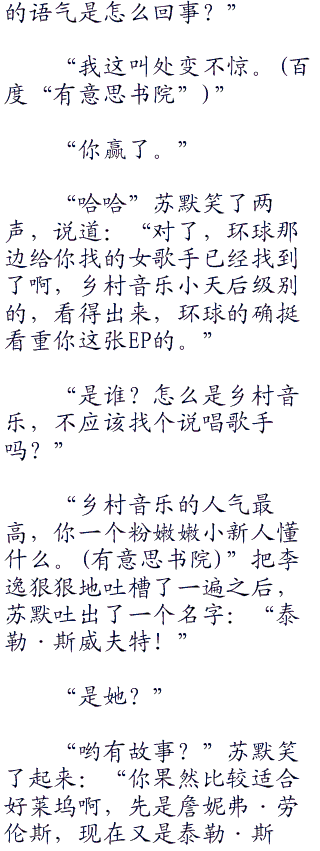 的语气是怎么回事？”
“我这叫处变不惊。(百
度“有意思书院”)”
“你赢了。”
“哈哈”苏默笑了两
声，说道：“对了，环球那
边给你找的女歌手已经找到
了啊，乡村音乐小天后级别
的，看得出来，环球的确挺
看重你这张EP的。”
“是谁？怎么是乡村音
乐，不应该找个说唱歌手
吗？”
“乡村音乐的人气最
高，你一个粉嫩嫩小新人懂
什么。(有意思书院)”把李
逸狠狠地吐槽了一遍之后，
苏默吐出了一个名字：“泰
勒·斯威夫特！”
“是她？”
“哟有故事？”苏默笑
了起来：“你果然比较适合
好莱坞啊，先是詹妮弗·劳
伦斯，现在又是泰勒·斯